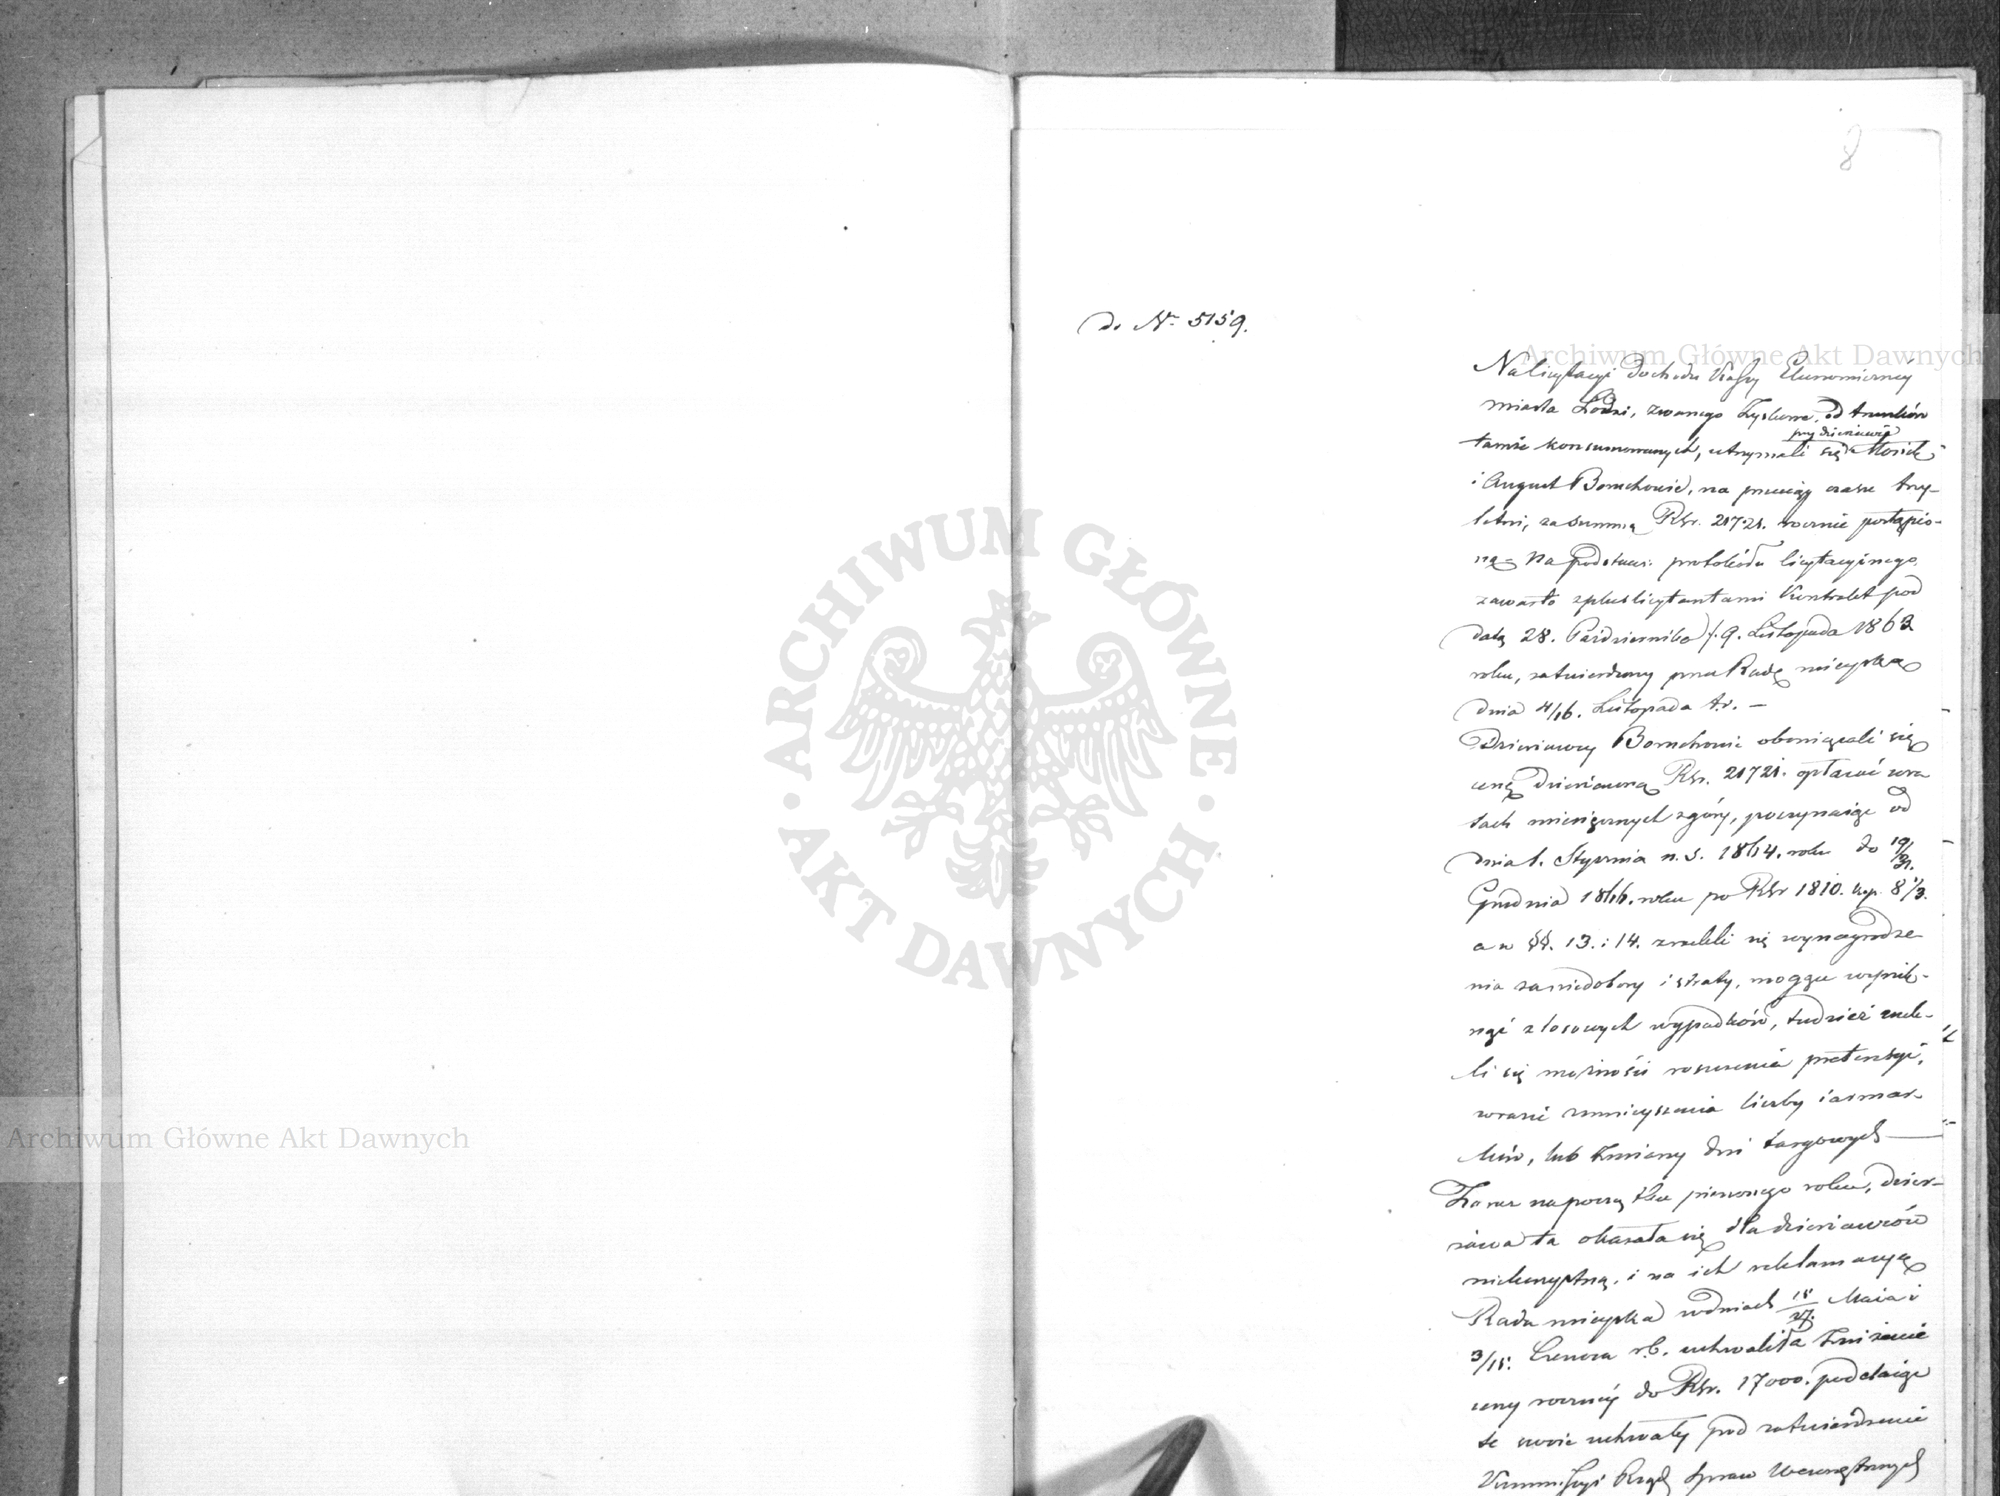 8
do Nr. 5159.
Na licytacyi dochodu Kassy Ekonomicznéy
miasta Łodzi, zwanego Zyskowe, od trunków
przy dzierżawie
tamże konsumowanych, utrzymali się
i August Boruchowie, na przeciąg czasu trzy-
letni, za summę Rsr. 21721. rocznie postąpio-
ną – Na podstawie protokółu licytacyinego
zawarto z pluslicytantami Kontrakt pod
datą 28. Października /: 9. Listopada 1863
roku, zatwierdzony przez Radę mieyską
dnia 4/16. Listopada t.r. –
Dzierżawcy Boruchowie obowiązali się
cenę dzierżawną Rsr. 21721. opłacać w ra
tach miesięcznych z góry, poczynaiąc od
dnia 1. Stycznia n. s. 1864. roku do 19/31.
Grudnia 1866. roku po Rsr 1810. kop. 8 1/3.
a w §§. 13. i 14. zrzekli się wynagrodze
nia za niedobory i straty, mogące wynik-
nąć z losowych wypadków, tudzież zrzek-
li się możności roszczenia pretensyi,
w razie zmnieyszenia liczby iarmar-
ków, lub zmiany dni targowych —
Zaraz na początku pierwszego roku, dzier-
żawa ta okazała się dla dzierżawców
niekorzystną, i na ich reklamacyą
Rada mieyska w dniach 15/27. Maia i
3/15. Czerwca r.b. uchwaliła zniżenie
ceny rocznéy do Rsr. 17000. poddaiąc
te swoie uchwały pod zatwierdzenie
Kommissyi Rząd. Spraw Wewnętrznych
ARCHIWUM GŁÓWNE
AKT DAWNYCH
Archiwum Główne Akt Dawnych
Archiwum Główne Akt Dawnych